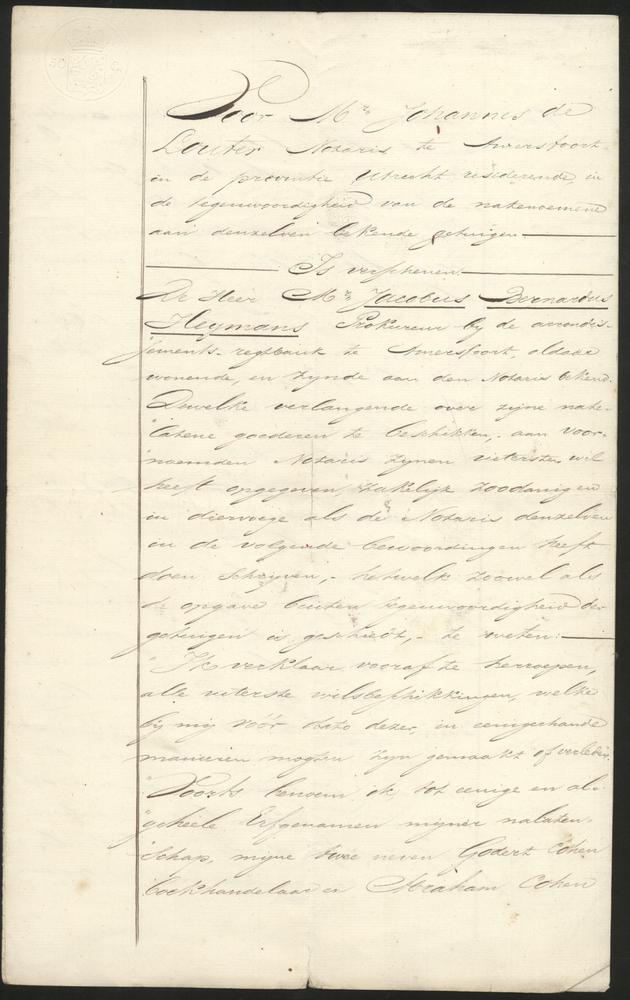 Voor Mr. Johannes de
Louter Notaris te Amersfoort
in de provintie Utrecht residerende, in
de tegenwoordigheid van de natenoemene
aan denzelven bekende getuigen
Is verschenen
De Heer Mr. Jacobus Bernardus
Heymans Prokureur bij de arrondis-
sements-regtbank te Amersfoort, aldaar
wonende, en zijnde aan den Notaris bekend.
Dewelke verlangende over zijne nate-
"latene goederen te beschikken, aan voor-
"noemden Notaris zijnen uitersten wil
heeft opgegeven zakelijk zoodanig en
in diervoege als de Notaris denzelven
in de volgende bewoordingen heeft
doen schrijven,- hetwelk zoowel als
de opgave buiten tegenwoordigheid der
getuigen is geschiedt,- te weten:
"Ik verklaar vooraf te herroepen,
alle uiterste wilsbeschikkingen, welke
bij mij vóór dato dezer, in eenigerhande
manieren mogten zijn gemaakt of verleden.
"Voorts benoem ik tot eenige en al-
"geheele Erfgenamen mijner nalaten-
"schap, mijne twee neven Godert Cohen
boekhandelaar en Abraham Cohen